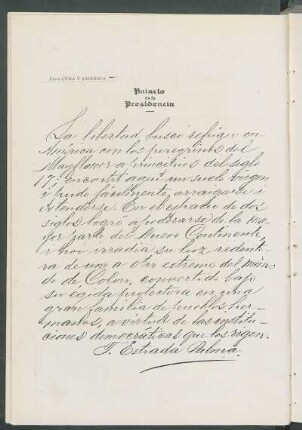 Para CUBA Y AMERICA
Palacio
de la
Presidencia
La libertad buscó refugio en
América con los peregrinos del
Mayflower a principios del siglo
17; encontró aquí un suelo virgen
i pudo facilmente, arraigar i
extenderse. En el espacio de dos
siglos logró apoderarse de la ma-
yor parte del Nuevo Continente
i hoi irradia su luz redento-
ra de un a otro extremo del mun-
do de Colon, convertido bajo
su egida protectora en una
gran familia de pueblos her-
manos, a virtud de las institu-
ciones democráticas que los rigen.
T. Estrada Palma.